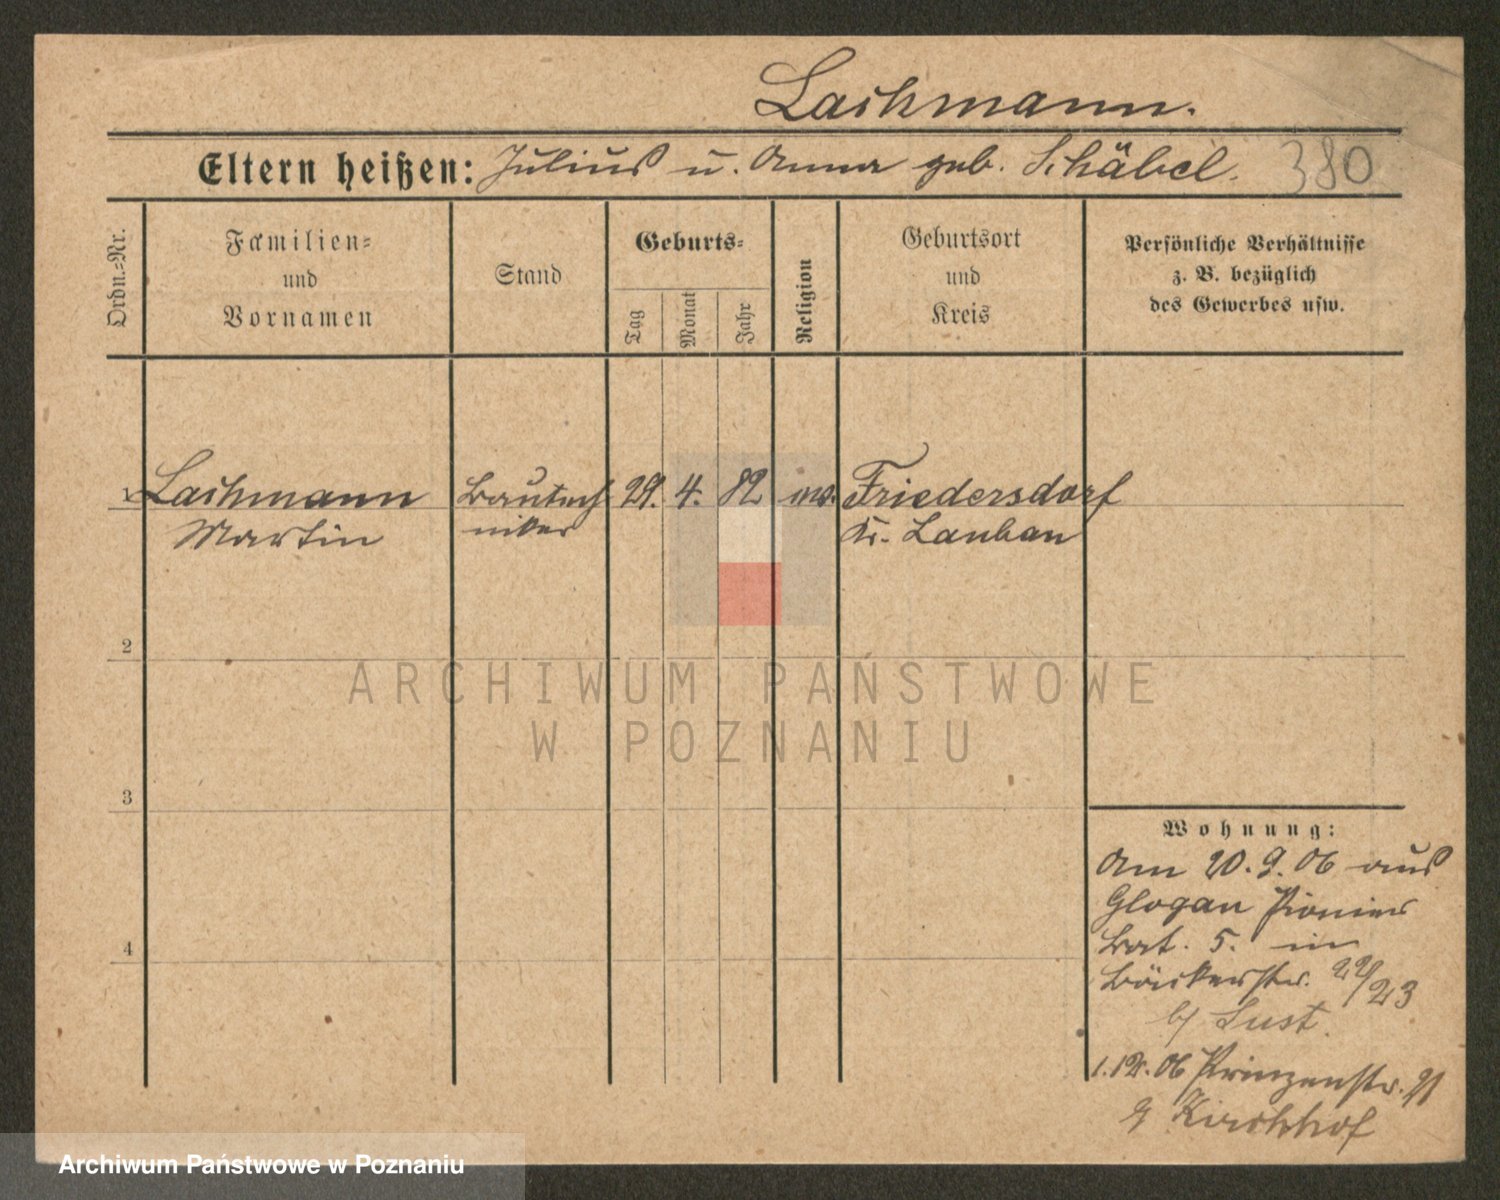 Lachmann.
Eltern heißen: Julius u. Anna geb. Schäbel. 380
Ordn.=Nr.
Familien=
und
Vornamen
Stand
Geburts=
Tag
Monat
Jahr
Religion
Geburtsort
und
Kreis
Persönliche Verhältnisse
z. B. bezüglich
des Gewerbes usw.
1 Lachmann Bautech 29. 4. 82 Friedersdorf
Martin niker Kr. Lauban
2
3
4
Wohnung:
Am 20.9.06 aus
Glogau Pionier
Bat. 5. in
Bäckerstr. 22/23
b/ Lust.
1.12.06 Prinzenstr. 21
Kirchhof
ARCHIWUM PAŃSTWOWE
W POZNANIU
Archiwum Państwowe w Poznaniu